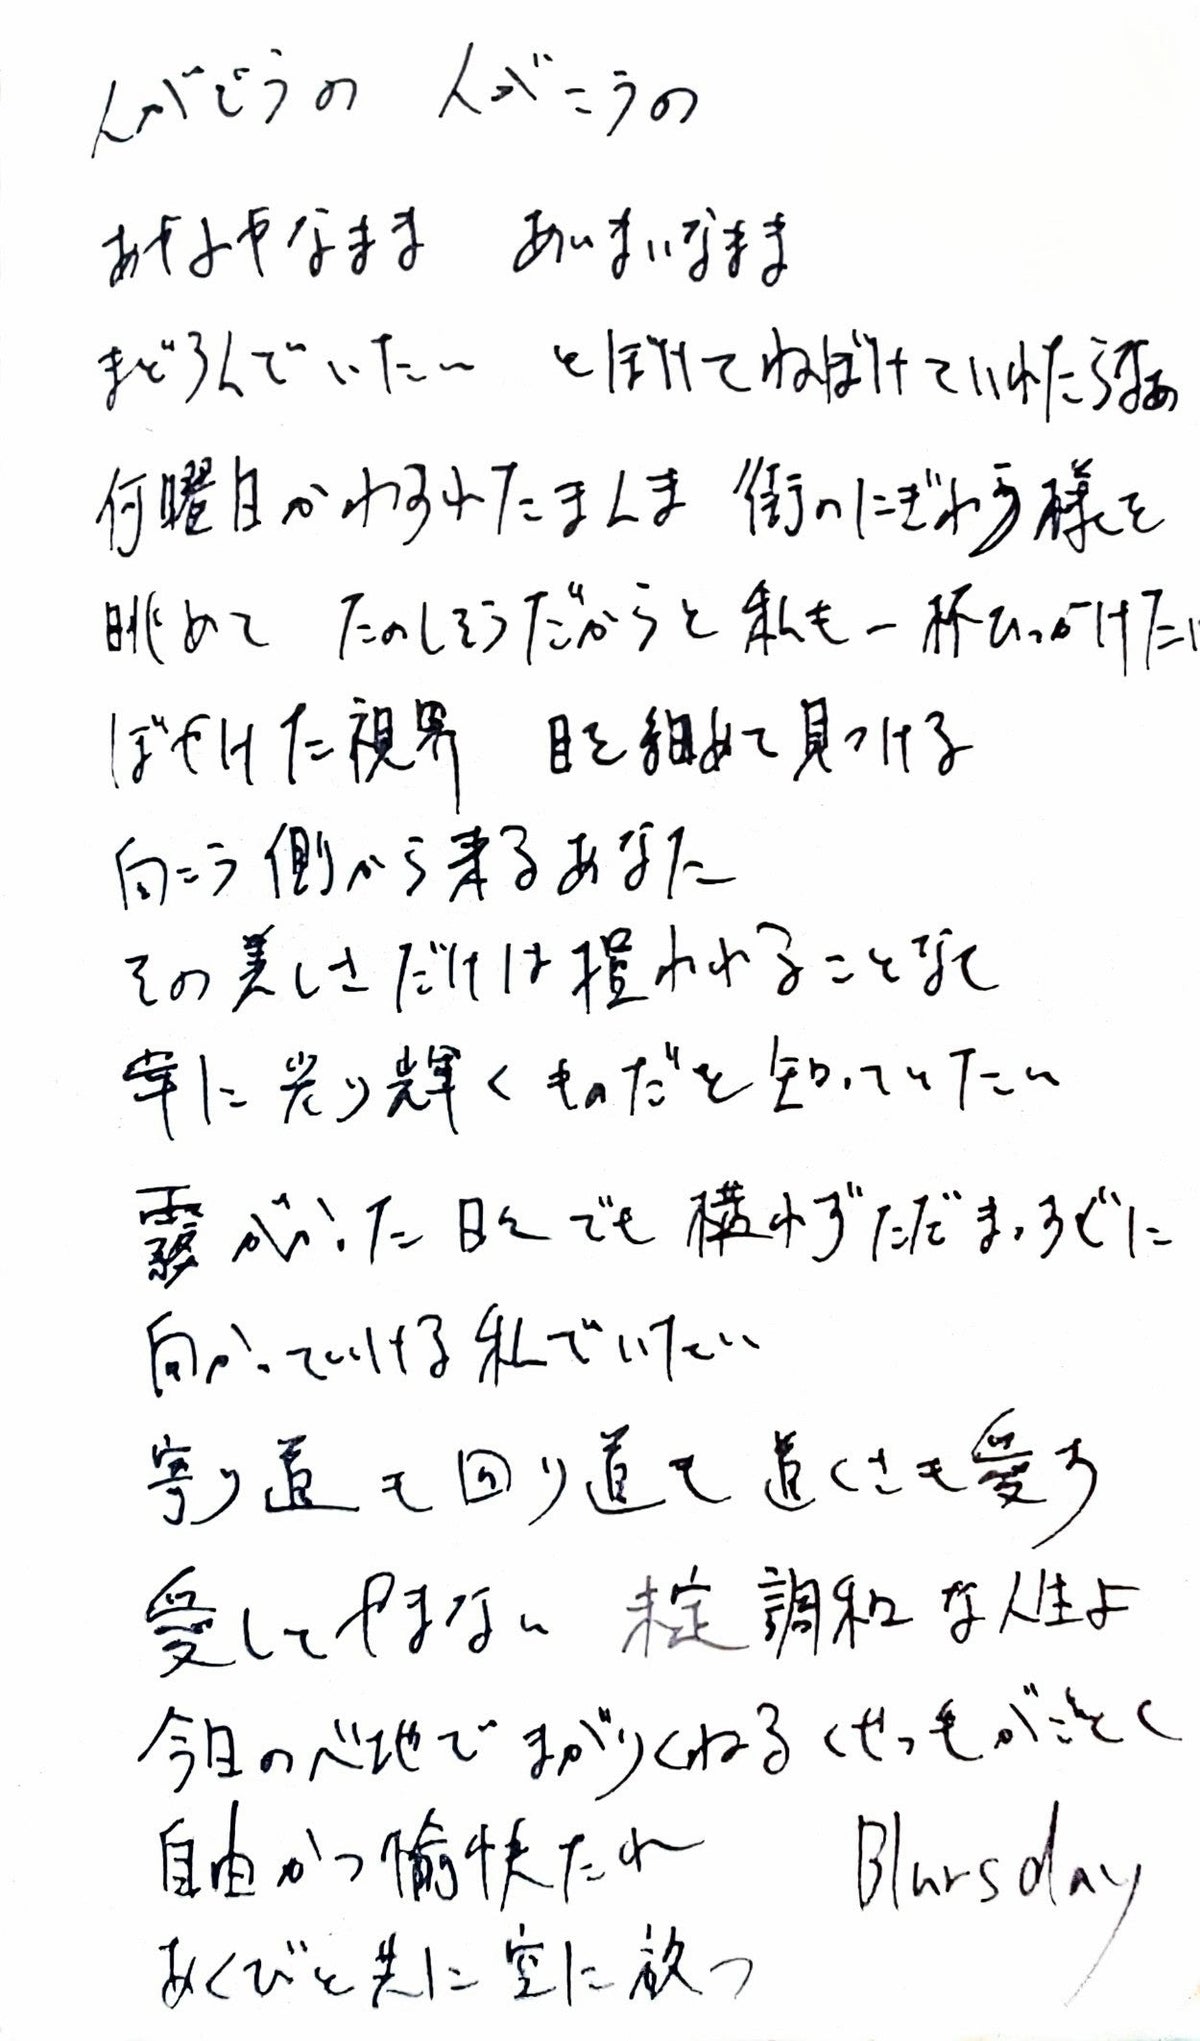 人がどうの 人がこうの
あやふやなまま あいまいなまま
まどろんでいたい とぼけてねぼけていれたらなあ
何曜日かわすれたまんま 街のにぎわう様を
眺めて たのしそうだからと 私も一杯ひっかけたい
ぼやけた視界 目を細めて見つける
向こう側から来るあなた
その美しさだけは われることなく
常に光り輝くものだと知っていたい
霧がかった日々でも構わずただまっすぐに
向かっていける私でいたい
寄り道も回り道も 遠くさも愛す
愛してやまない 未定調和な人生よ
今日の心地で まがりくねるくせっ毛がごとく
自由かつ愉快たれ
Blursday
あくびと共に空に放つ